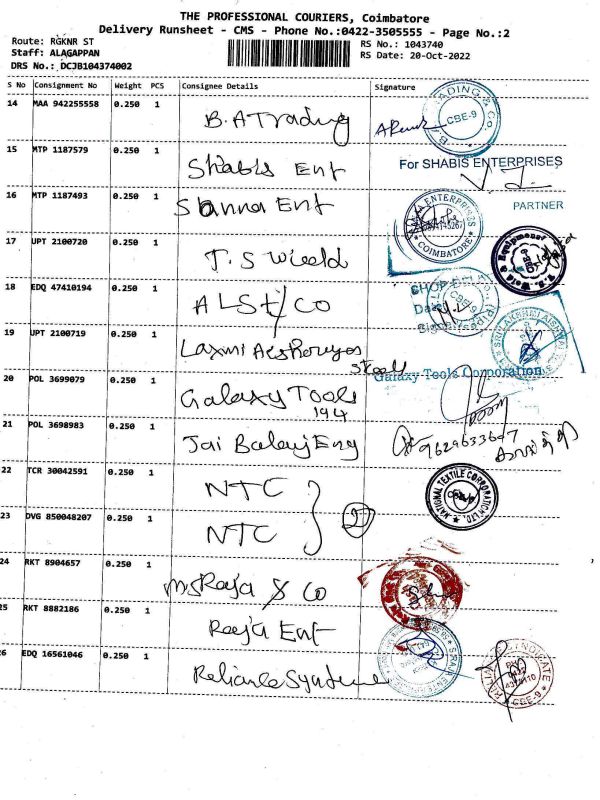 THE PROFESSIONAL COURIERS, Coimbatore
Delivery Runsheet - CMS - Phone No.:0422-3505555 - Page No.:2
Route: RGKNR ST
Staff: ALAGAPPAN
DRS No.: DCJB104374002
RS No.: 1043740
RS Date: 20-Oct-2022
S No Consignment No Weight PCS Consignee Details Signature
14 MAA 942255558 0.250 1 B.A Trading
CBE-9
15 MTP 1187579 0.250 1 Shabis Ent
For SHABIS ENTERPRISES
PARTNER
16 MTP 1187493 0.250 1 Ent
ENTERPRISES
COIMBATORE
17 UPT 2100720 0.250 1 T.S Wield
18 EDQ 47410194 0.250 1 ALS & CO
CBE-9
19 UPT 2100719 0.250 1 Laxmi
Steels
Galaxy Tools Corporation
20 POL 3699079 0.250 1 Galaxy Tools
194
21 POL 3698983 0.250 1 Jai Balaji Eng
22 TCR 30042591 0.250 1 NTC
NATIONAL TEXTILE CORPORATION LTD.
23 DVG 850048207 0.250 1 NTC
24 RKT 8904657 0.250 1 M.S Raja & Co
25 RKT 8882186 0.250 1 Raja Ent
26 EDQ 16561046 0.250 1 Reliance
SYNDICATE
CBE-9